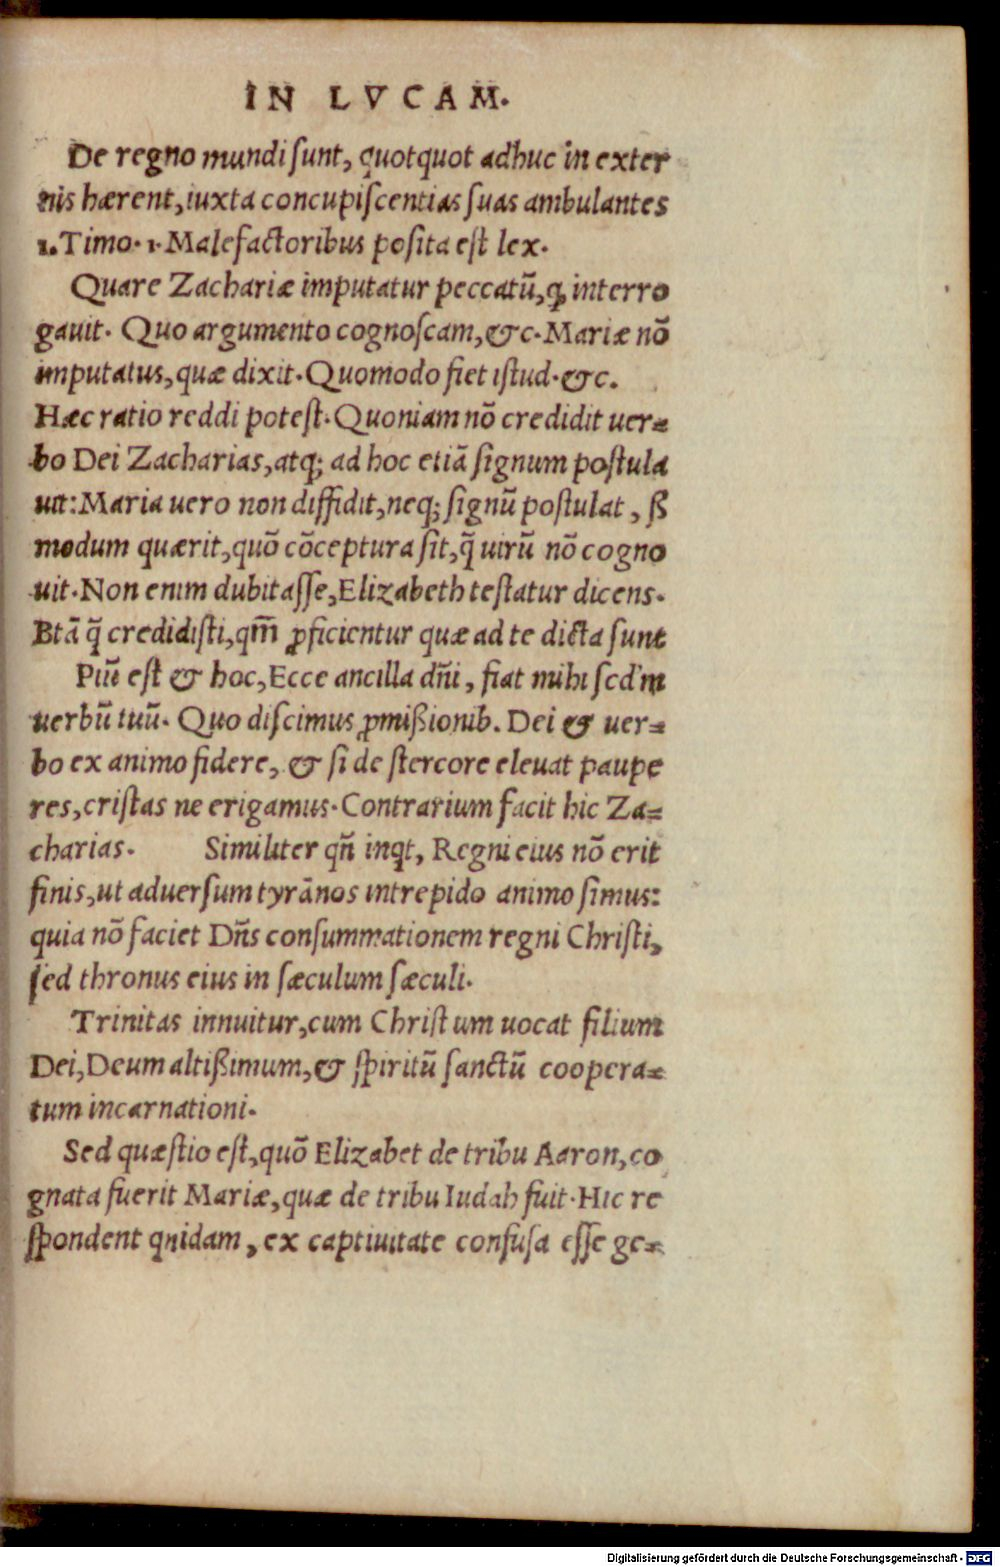 IN LVCAM.
De regno mundi ſunt, quotquot adhuc in exter
nis hærent, iuxta concupiſcentias ſuas ambulantes
1. Timo. 1. Malefactoribus poſita eſt lex.
Quare Zachariæ imputatur peccatū, ꝙ interro
gauit. Quo argumento cognoſcam, &c. Mariæ nō
imputatus, quæ dixit. Quomodo fiet iſtud. &c.
Hæc ratio reddi poteſt. Quoniam nō credidit uer-
bo Dei Zacharias, atq; ad hoc etiā ſignum poſtula
uit: Maria uero non diffidit, neq; ſignū poſtulat, ſꝫ
modum quærit, quō cōceptura ſit, q̄ uirū nō cogno
uit. Non enim dubitaſſe, Elizabeth teſtatur dicens.
Btā q̄ credidiſti, qm̄ ꝓficientur quæ ad te dicta ſunt
Piū eſt & hoc, Ecce ancilla dn̄i, fiat mihi ſcd'm
uerbū tuū. Quo diſcimus ꝓmißionib. Dei & uer-
bo ex animo fidere, & ſi de ſtercore eleuat paupe
res, criſtas ne erigamus. Contrarium facit hic Za-
charias. Similiter qn̄ inqt, Regni eius nō erit
finis, ut aduerſum tyrānos intrepido animo ſimus:
quia nō faciet Dn̄s conſummationem regni Chriſti,
ſed thronus eius in ſæculum ſæculi.
Trinitas innuitur, cum Chriſtum uocat filium
Dei, Deum altißimum, & ſpiritū ſanctū coopera-
tum incarnationi.
Sed quæſtio eſt, quō Elizabet de tribu Aaron, co
gnata fuerit Mariæ, quæ de tribu Iudah fuit. Hic re
ſpondent quidam, ex captiuitate confuſa eſſe ge-
Digitalisierung gefördert durch die Deutsche Forschungsgemeinschaft - DFG